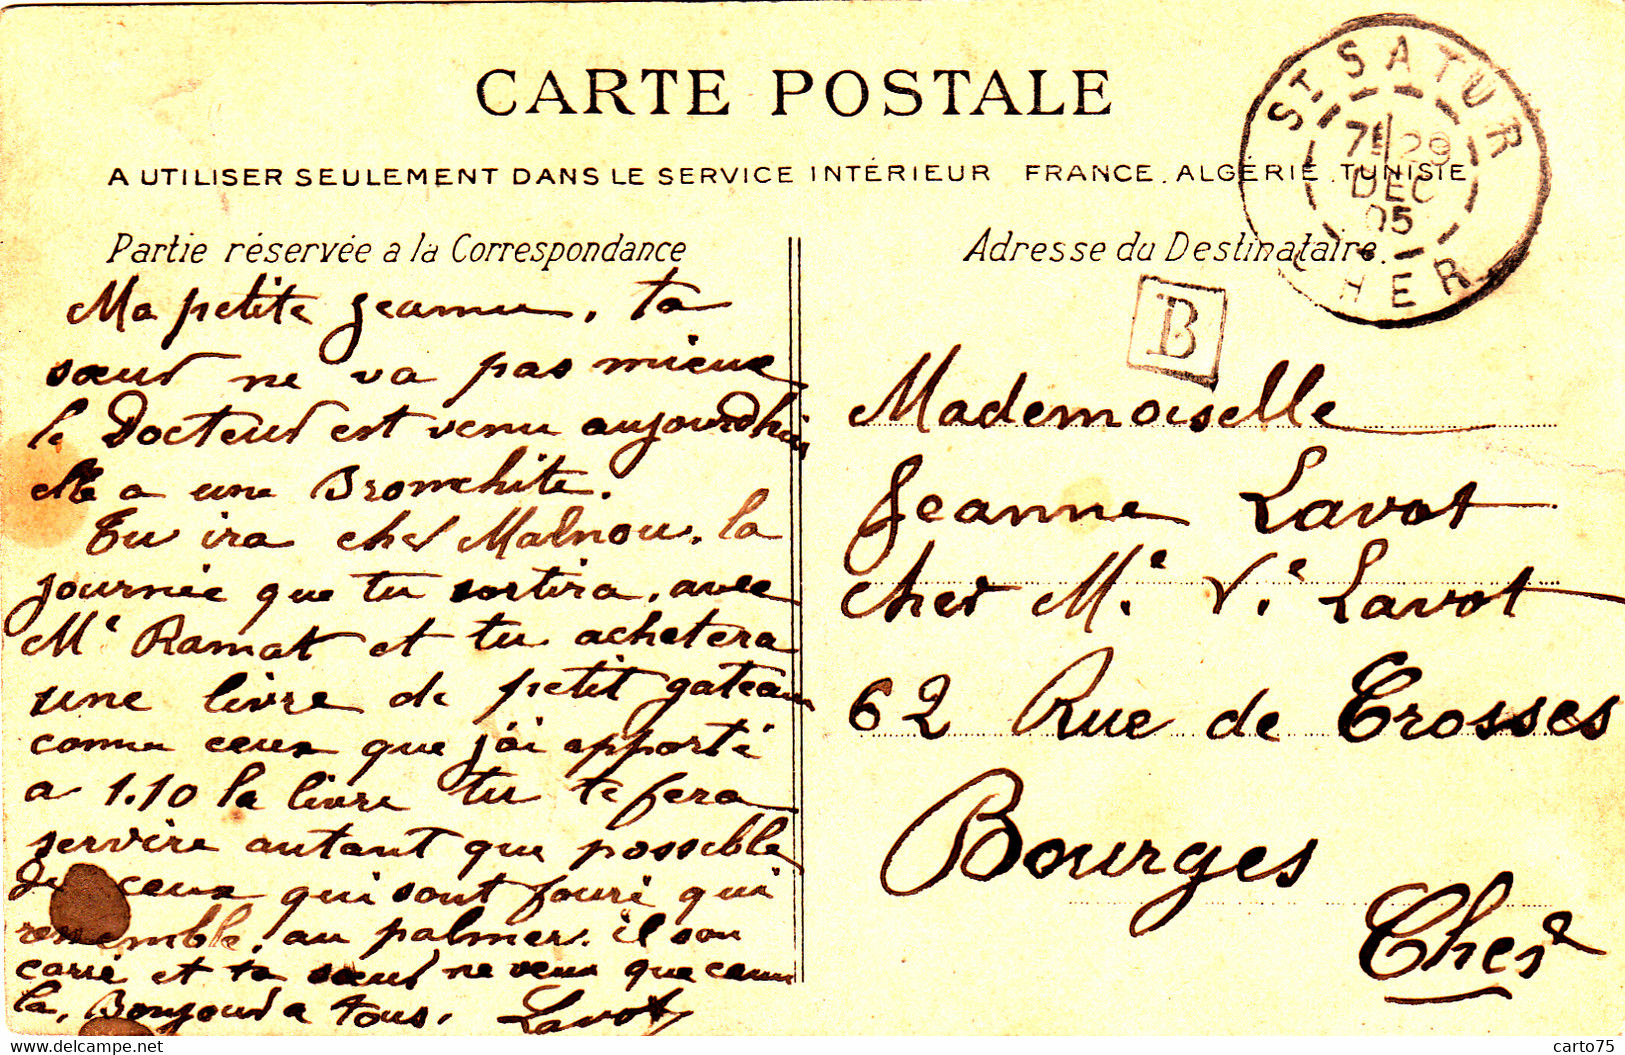 CARTE POSTALE
A UTILISER SEULEMENT DANS LE SERVICE INTÉRIEUR FRANCE. ALGÉRIE. TUNISIE
ST SATUR
7E 29
DEC
05
CHER
Partie réservée a la Correspondance
Ma petite Jeanne, ta
sœur ne va pas mieux
le Docteur est venu aujourd'hui
elle a une Bronchite.
Tu ira chez Malnou, la
journée que tu sortira, avec
Me Ramat et tu achetera
une livre de petit gateau
comme ceux que j'ai apporté
a 1.10 la livre tu te fera
servire autant que possible
de ceux qui sont fouré qui
resemble, au palmer. il son
carré et ta sœur ne veux que ceux
la, Bonjour a tous. Lavot
Adresse du Destinataire.
B
Mademoiselle
Jeanne Lavot
chez Me Ve Lavot
62 Rue de Crosses
Bourges
Cher
delcampe.net
carto75